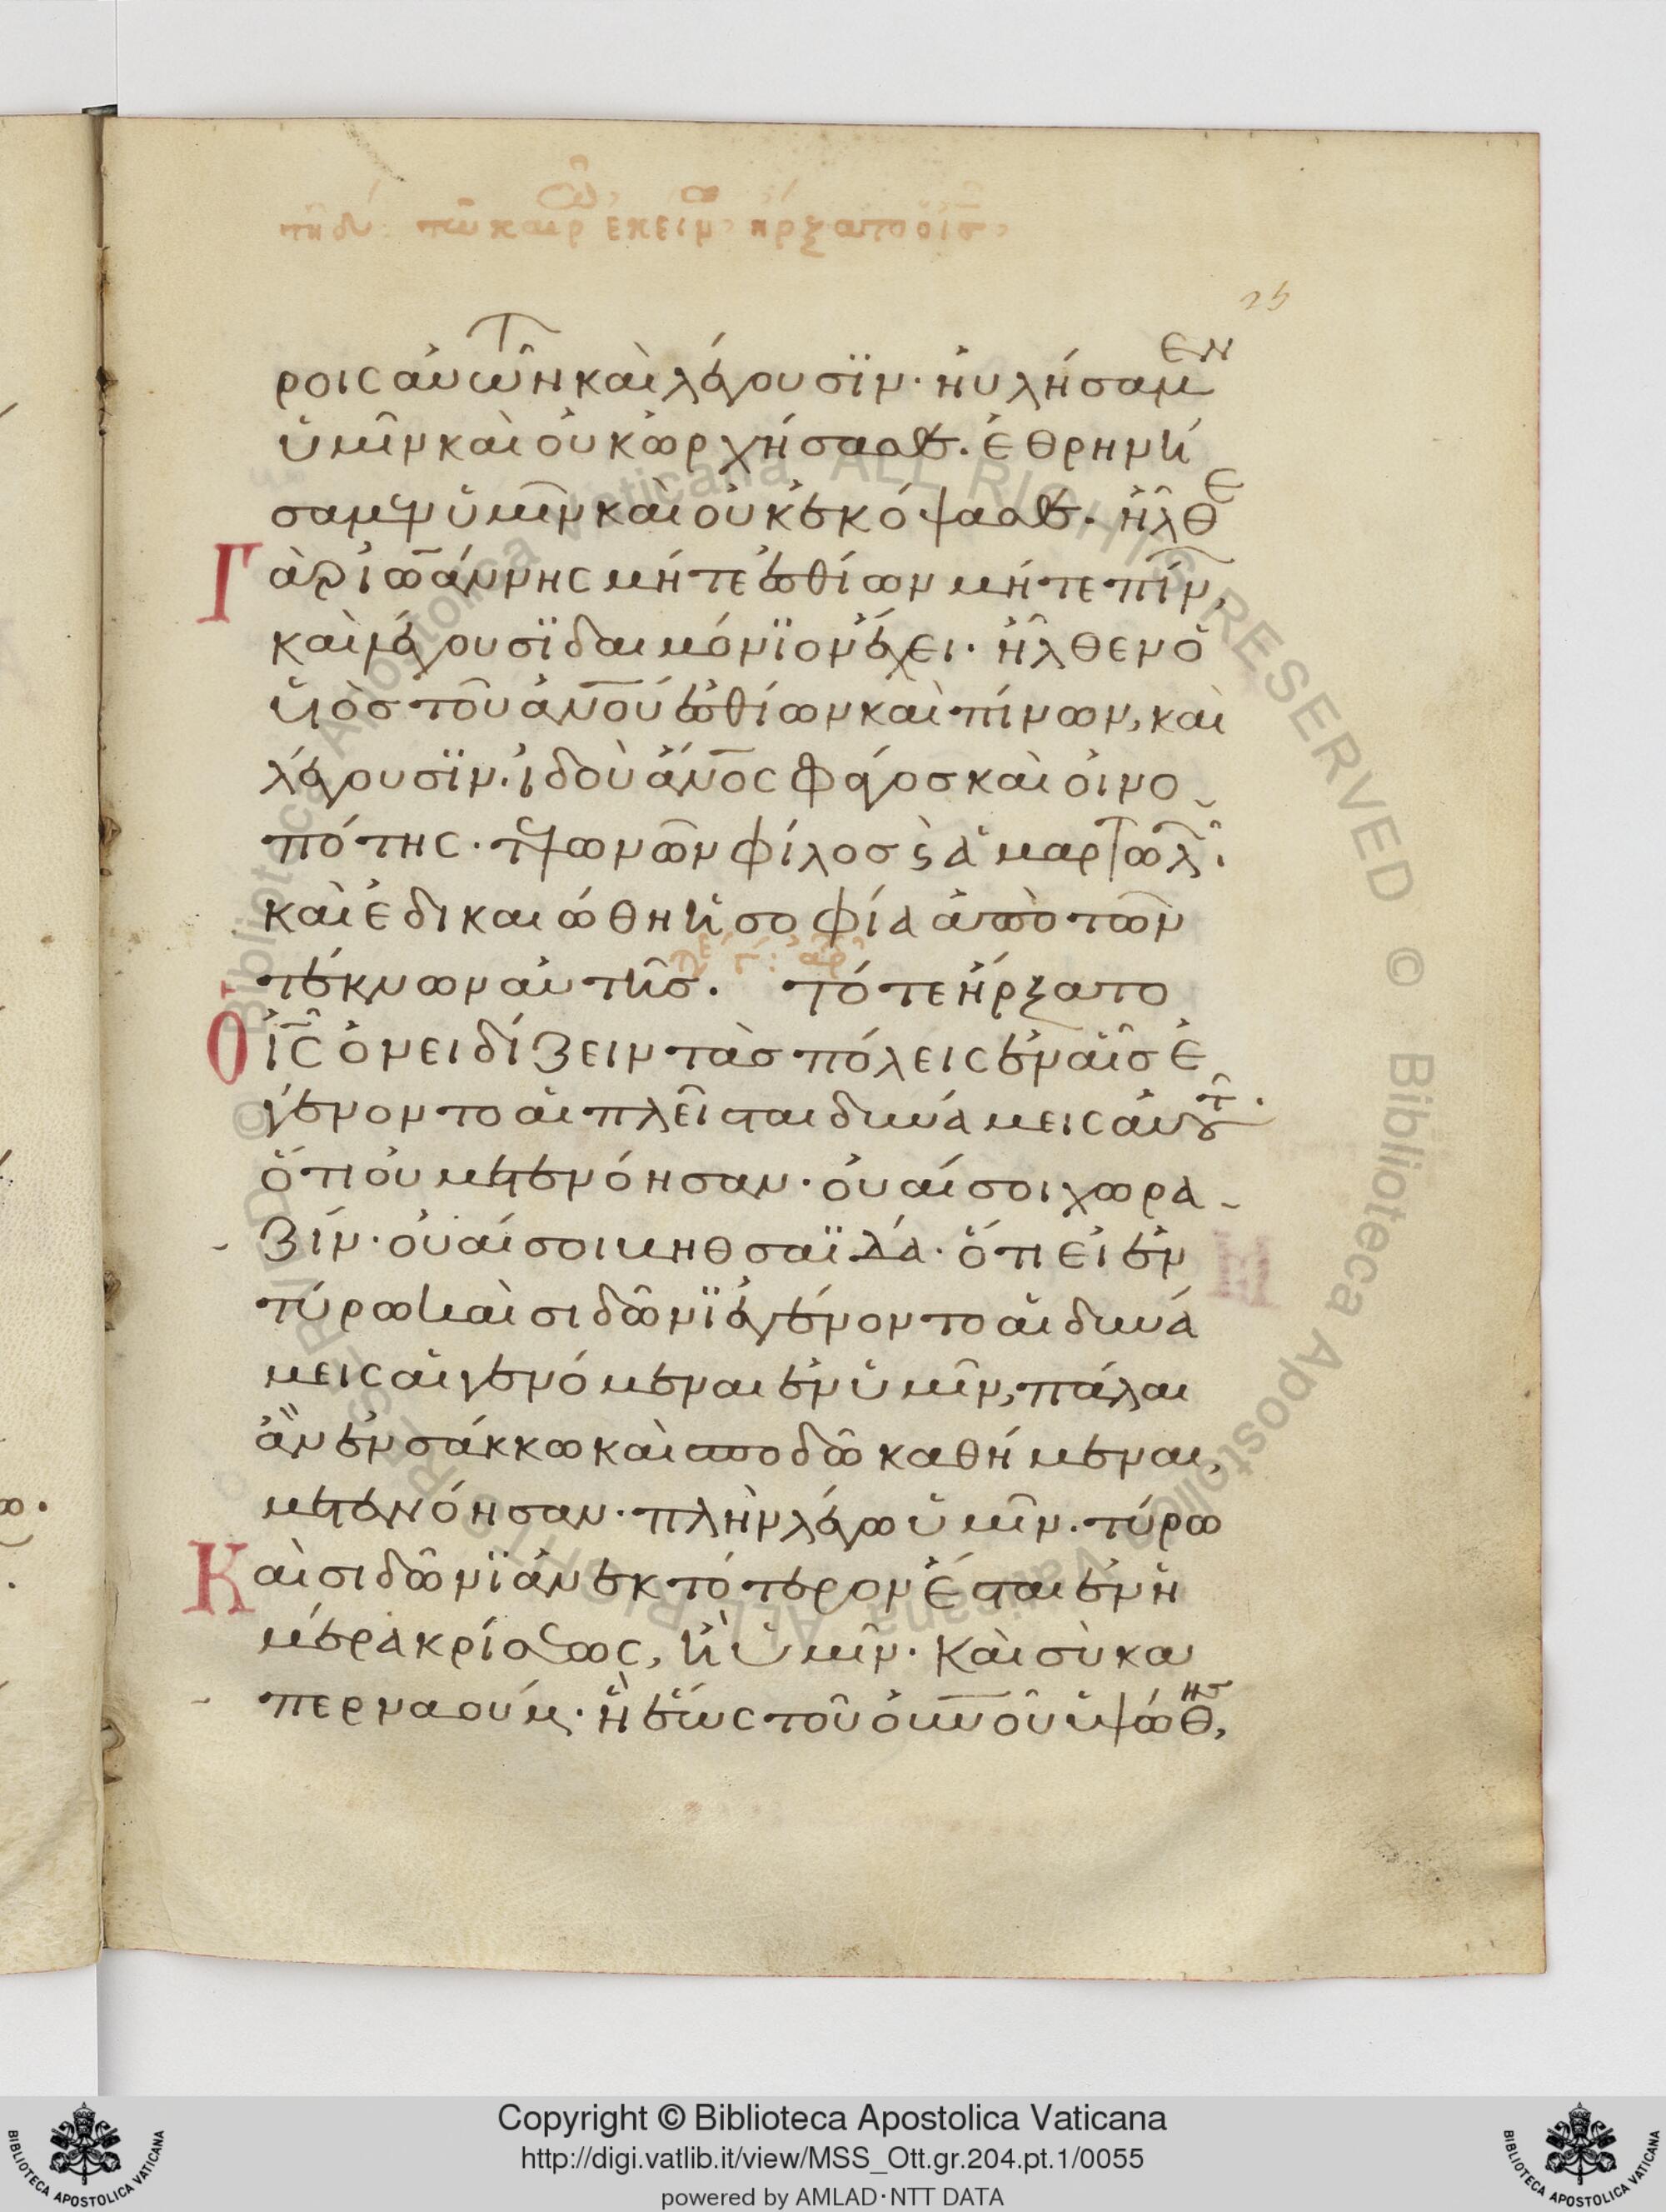 τῆ δ´: τῶ καιρ ἐκείν, ἤρξατο ὁ ἰς,
25
ροις αὐτῶν καὶ λέγουσϊν· ηὐλήσαμεν
ὑμῖν καὶ οὐκ ὠρχήσασθε· ἐθρηνή
σαμεν ὑμῖν καὶ οὐκ ἐκόψασθε· ἦλθε
Γὰρ ἰωάννης μήτε ἐσθίων μήτε πίν,
καὶ λέγουσϊ δαιμόνϊον ἔχει· ἦλθεν ὁ
υἱὸσ τοῦ ἀνου ἐσθίων καὶ πίνων, καὶ
λέγουσϊν· ἰδοὺ ἄνος φάγοσ καὶ οἰνο
πότης· τελωνῶν φίλοσ ϗ ἁμαρτωλ·
καὶ ἐδικαιώθη ἡ σοφία ἀπὸ τῶν
τέκνων αὐτῆσ· τότε ἤρξατο
Ὁ ἰς ὀνειδίζειν τὰσ πόλεις ἐν αἷσ ἐ
γένοντο αἱ πλεῖσται δυνάμεις αὐτοῦ·
ὅτι οὐ μετενόησαν· οὐαί σοι χωρα
ζίν· οὐαί σοι βηθσαϊδά· ὅτι εἰ ἐν
τύρω καὶ σιδῶνϊ ἐγένοντο αἱ δυνά
μεις αἱ γενόμεναι ἐν ὑμῖν, πάλαι
ἂν ἐν σάκκω καὶ σποδῶ καθήμεναι,
μετενόησαν· πλὴν λέγω ὑμῖν· τύρω
Καὶ σιδῶνϊ ἀνεκτότερον ἔσται ἐν ἡ
μέρα κρίσεως, ἢ ὑμῖν· Καὶ σὺ κα
περναούμ· ἡ ἕως τοῦ οὐνοῦ ὑψωθῆσ,
Copyright © Biblioteca Apostolica Vaticana
http://digi.vatlib.it/view/MSS_Ott.gr.204.pt.1/0055
powered by AMLAD·NTT DATA